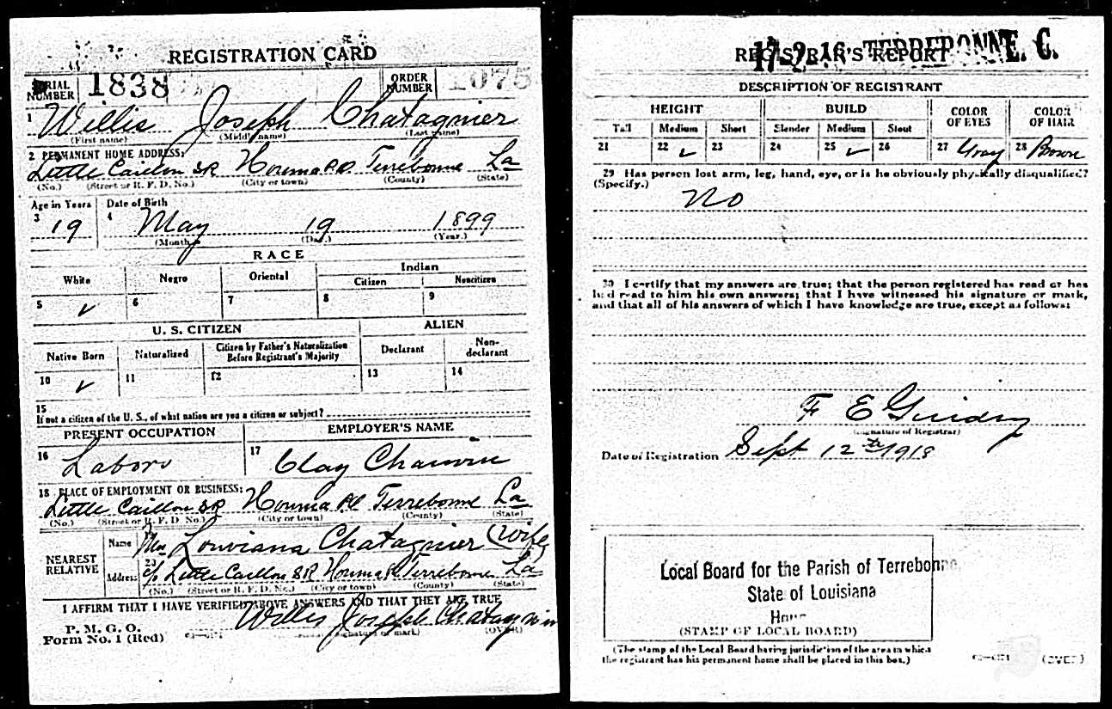 REGISTRATION CARD
SERIAL NUMBER 1838 ORDER NUMBER 1075
1 Willis Joseph Chatagnier
(First name) (Middle name) (Last name)
2 PERMANENT HOME ADDRESS:
Little Caillou SR Houma PO Terrebonne La
(No.) (Street or R. F. D. No.) (City or town) (County) (State)
Age in Years Date of Birth
3 19 4 May 19 1899
(Month.) (Day.) (Year.)
RACE
White Negro Oriental Indian
Citizen Noncitizen
5 ✓ 6 7 8 9
U. S. CITIZEN ALIEN
Native Born Naturalized Citizen by Father's Naturalization Before Registrant's Majority Declarant Non-declarant
10 ✓ 11 12 13 14
15
If not a citizen of the U. S., of what nation are you a citizen or subject?
PRESENT OCCUPATION EMPLOYER'S NAME
16 Labors 17 Clay Chauvin
18 PLACE OF EMPLOYMENT OR BUSINESS:
Little Caillou SR Houma PO Terrebonne La
(No.) (Street or R. F. D. No.) (City or town) (County) (State)
NEAREST RELATIVE
Name Mrs Louviana Chatagnier (wife
Address 20 c/o Little Caillou SR Houma Terrebonne La
(No.) (Street or R. F. D. No.) (City or town) (County) (State)
I AFFIRM THAT I HAVE VERIFIED ABOVE ANSWERS AND THAT THEY ARE TRUE
P. M. G. O.
Form No. 1 (Red)
Willis Joseph
(Signature or mark) (OVER)
REGISTRAR'S REPORT
17-2-16 TERREBONNE. C.
DESCRIPTION OF REGISTRANT
HEIGHT BUILD COLOR OF EYES COLOR OF HAIR
Tall Medium Short Slender Medium Stout
21 22 ✓ 23 24 25 ✓ 26 27 Gray 28 Brown
29 Has person lost arm, leg, hand, eye, or is he obviously physically disqualified?
(Specify.)
No
30 I certify that my answers are true; that the person registered has read or has
had read to him his own answers; that I have witnessed his signature or mark,
and that all of his answers of which I have knowledge are true, except as follows:
F E Guidry
(Signature of Registrar)
Date of Registration Sept 12th 1918
Local Board for the Parish of Terrebonne,
State of Louisiana
(STAMP OF LOCAL BOARD)
(The stamp of the Local Board having jurisdiction of the area in which
the registrant has his permanent home shall be placed in this box.)
(OVER)